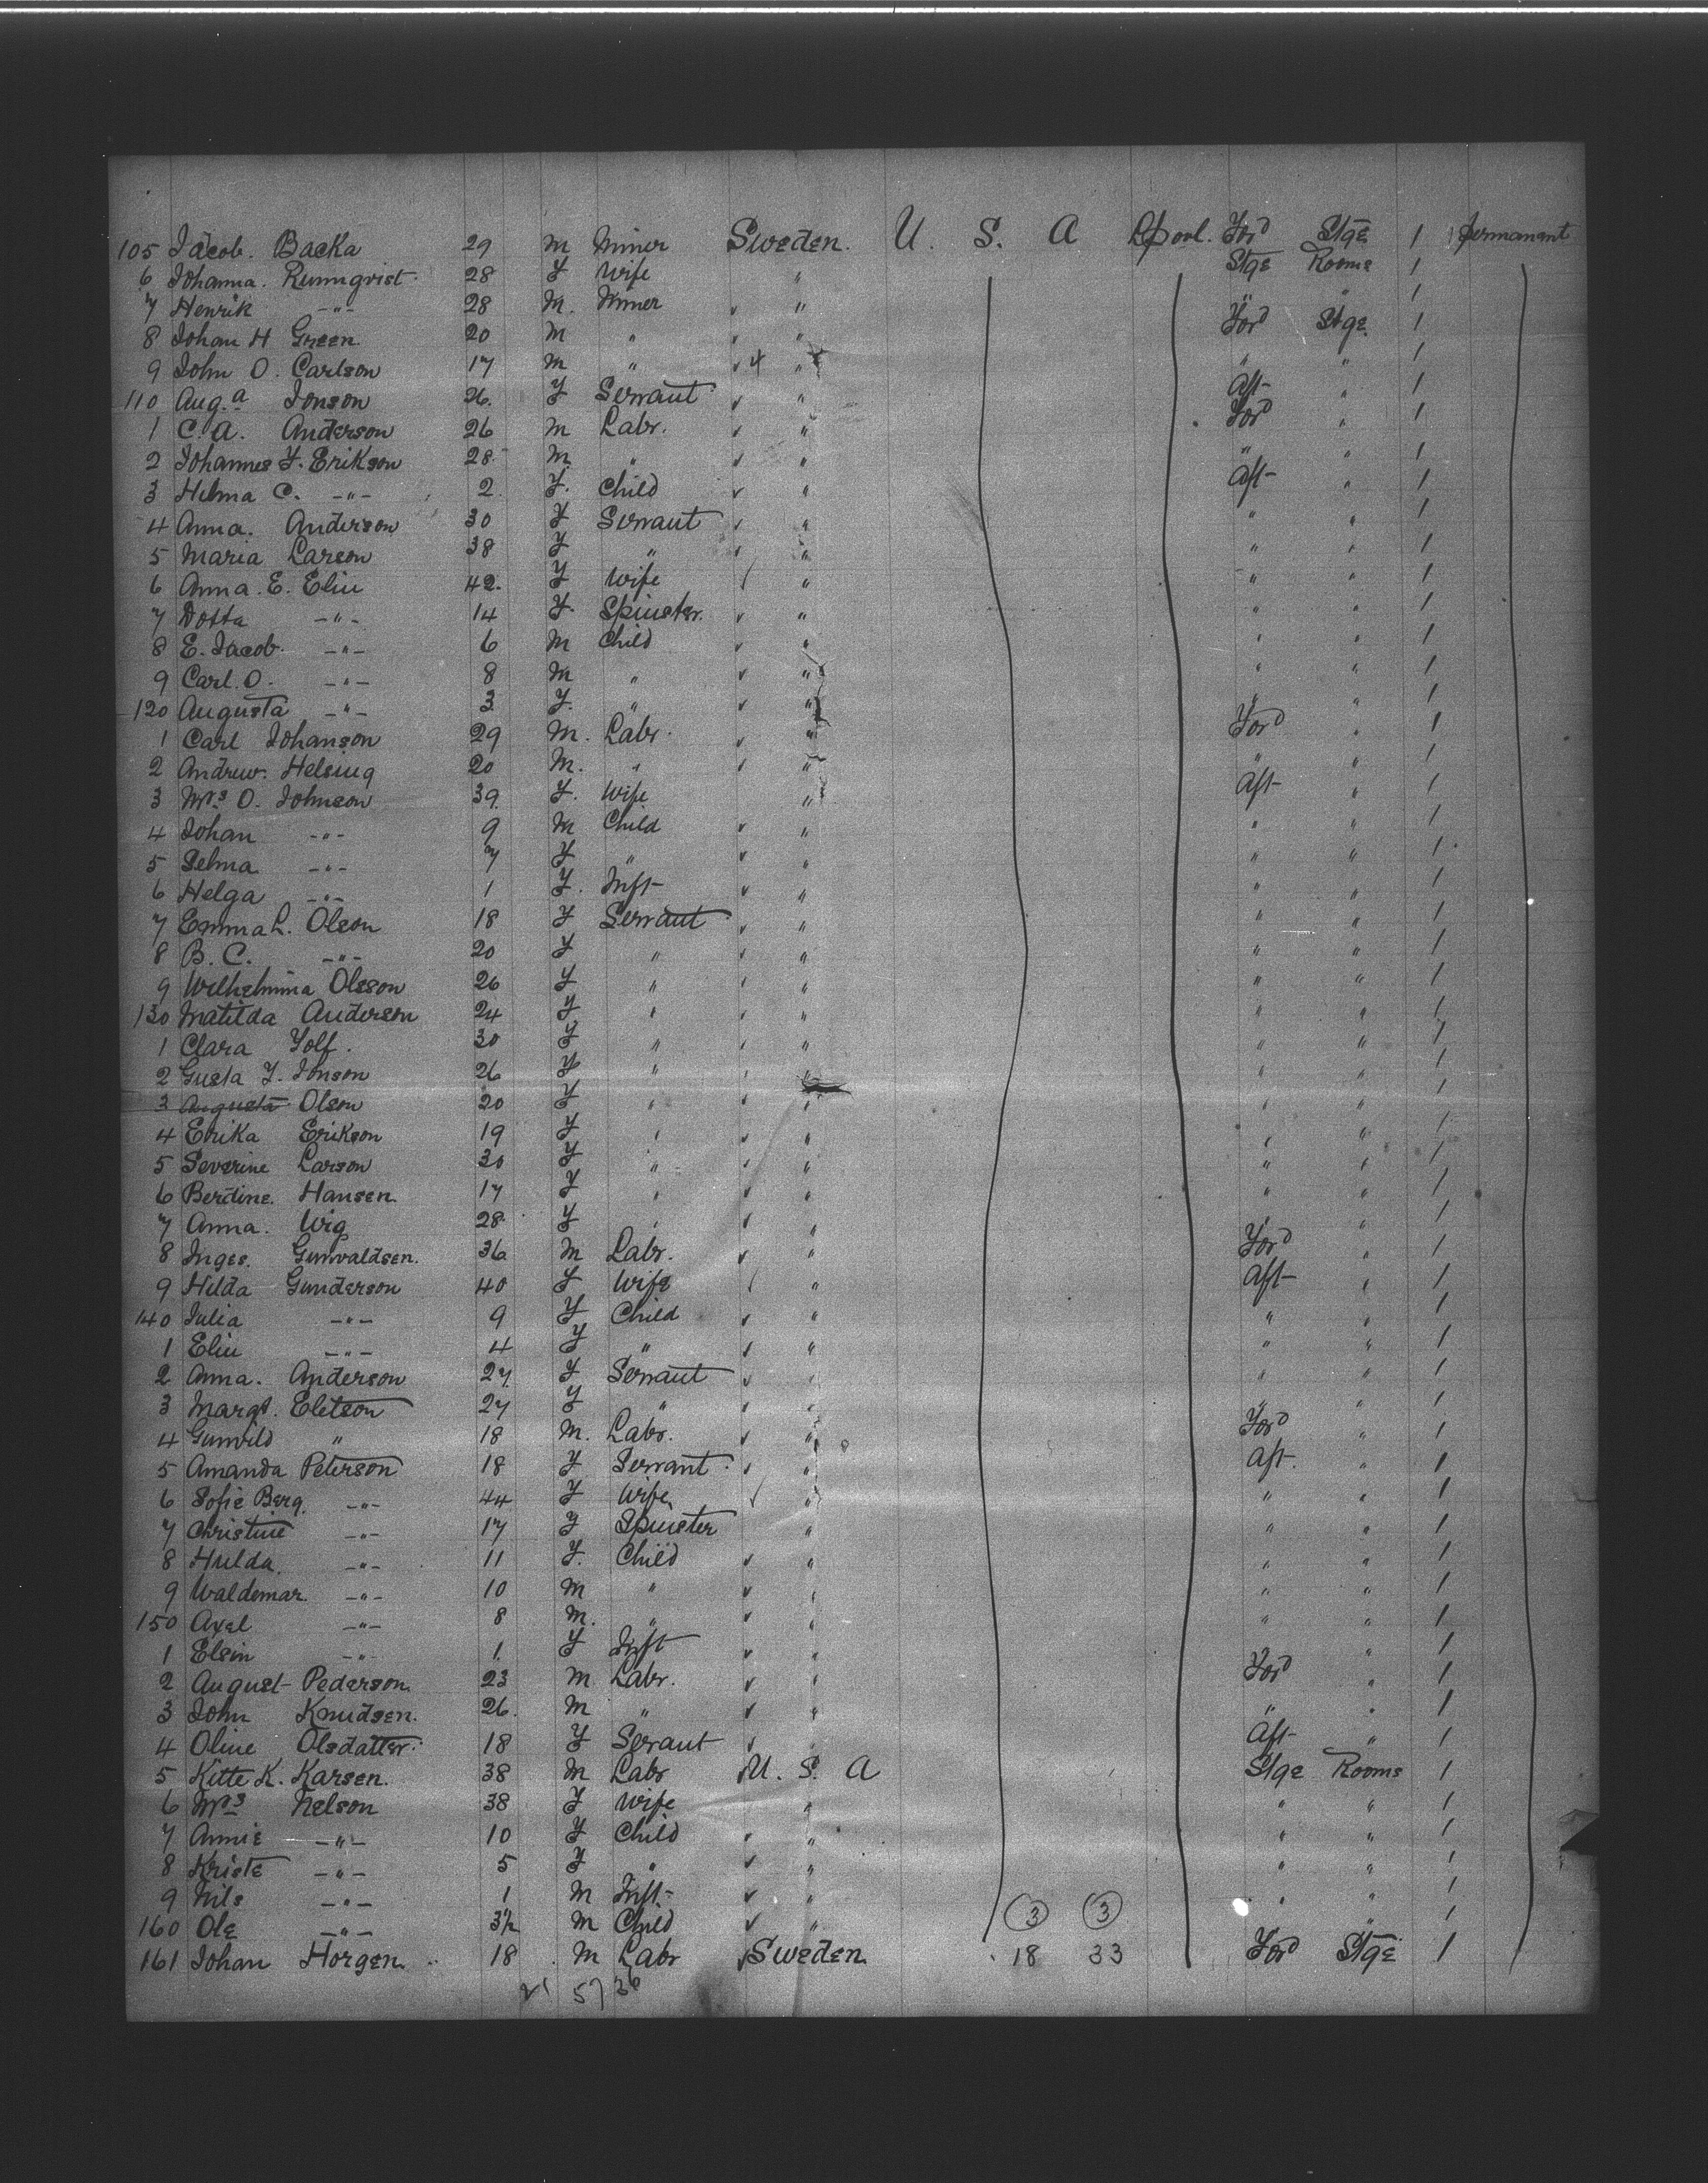 105 Jacob. Backa 29 M Miner Sweden. U. S. A Lpool. Ford Stge 1 permanant
6 Johanna. Runnqvist 28 F Wife " Stge Rooms 1
7 Henrik -"- 28 M. Miner " " 1
8 Johan H Green 20 M " " Ford Stge. 1
9 John O. Carlson 17 M " 4 " " " 1
110 Aug.a Jonson 26. F Servant " Aft- " 1
1 C. A. Anderson 26 M Labr. " Ford " 1
2 Johannes F. Erikson 28 M " " " " 1
3 Hilma C. -"- 2 F. Child " Aft- " 1
4 Anna. Anderson 30 F Servant " " " 1
5 Maria Larson 38 F " " " " 1
6 Anna. E. Elin 42. F Wife " " " 1
7 Dotta -"- 14 F. Spinster. " " " 1
8 E. Jacob -"- 6 M Child " " " 1
9 Carl. O. -"- 8 M " " " " 1
120 Augusta -"- 3 F. " " " " 1
1 Carl Johanson 29 M. Labr. " Ford " 1
2 Andrew. Helsing 20 M. " " " " 1
3 Mrs O. Johnson 39. F. Wife " Aft- " 1
4 Johan -"- 9 M Child " " " 1
5 Selma -"- 7 F " " " " 1
6 Helga -"- 1 F. Inft- " " " 1
7 Emma L. Olson 18 F Servant " " " 1
8 B. C. -"- 20 F " " " " 1
9 Wilhelmina Olsson 26 F " " " " 1
130 Matilda Anderson 24 F " " " " 1
1 Clara Folf. 30 F " " " " 1
2 Gusta F. Jonson 26 F " " " " 1
3 Augusta Olson 20 F " " " " 1
4 Erika Erikson 19 F " " " " 1
5 Severine Larson 30 F " " " " 1
6 Berdine. Hansen. 17 F " " " " 1
7 Anna. Wig 28. F " " " " 1
8 Inges. Gunvaldsen. 36 M Labr. " Ford " 1
9 Hilda Gunderson 40 F Wife " Aft- " 1
140 Julia -"- 9 F Child " " " 1
1 Elin -"- 4 F " " " " 1
2 Anna. Anderson 27 F Servant " " " 1
3 Margt. Eletson 27 F " " " " 1
4 Gunvild " 18 M. Labr. " Ford " 1
5 Amanda Peterson 18 F Servant " Aft. " 1
6 Sofie Berg. -"- 44 F Wife " " " 1
7 Christine -"- 17 F Spinster " " " 1
8 Hulda. -"- 11 F. Child " " " 1
9 Waldemar. -"- 10 M " " " " 1
150 Axel -"- 8 M. " " " " 1
1 Elsin -"- 1. F Inft " " " 1
2 August Pederson. 23 M Labr. " Ford " 1
3 John Knudsen. 26. M " " " " 1
4 Oline Olsdatter. 18 F Servant " Aft- " 1
5 Kitte K. Karsen. 38 M Labr U. S. A Stge Rooms 1
6 Mrs Nelson 38 F Wife " " " 1
7 Annie -"- 10 F Child " " " 1
8 Kriste -"- 5 F " " " " 1
9 Nils -"- 1 M Inft- " " " 1
160 Ole -"- 3½ M Child " 3 3 " " 1
161 Johan Horgen. 18 M Labr Sweden. 18 33 Ford Stge 1
21 57 36